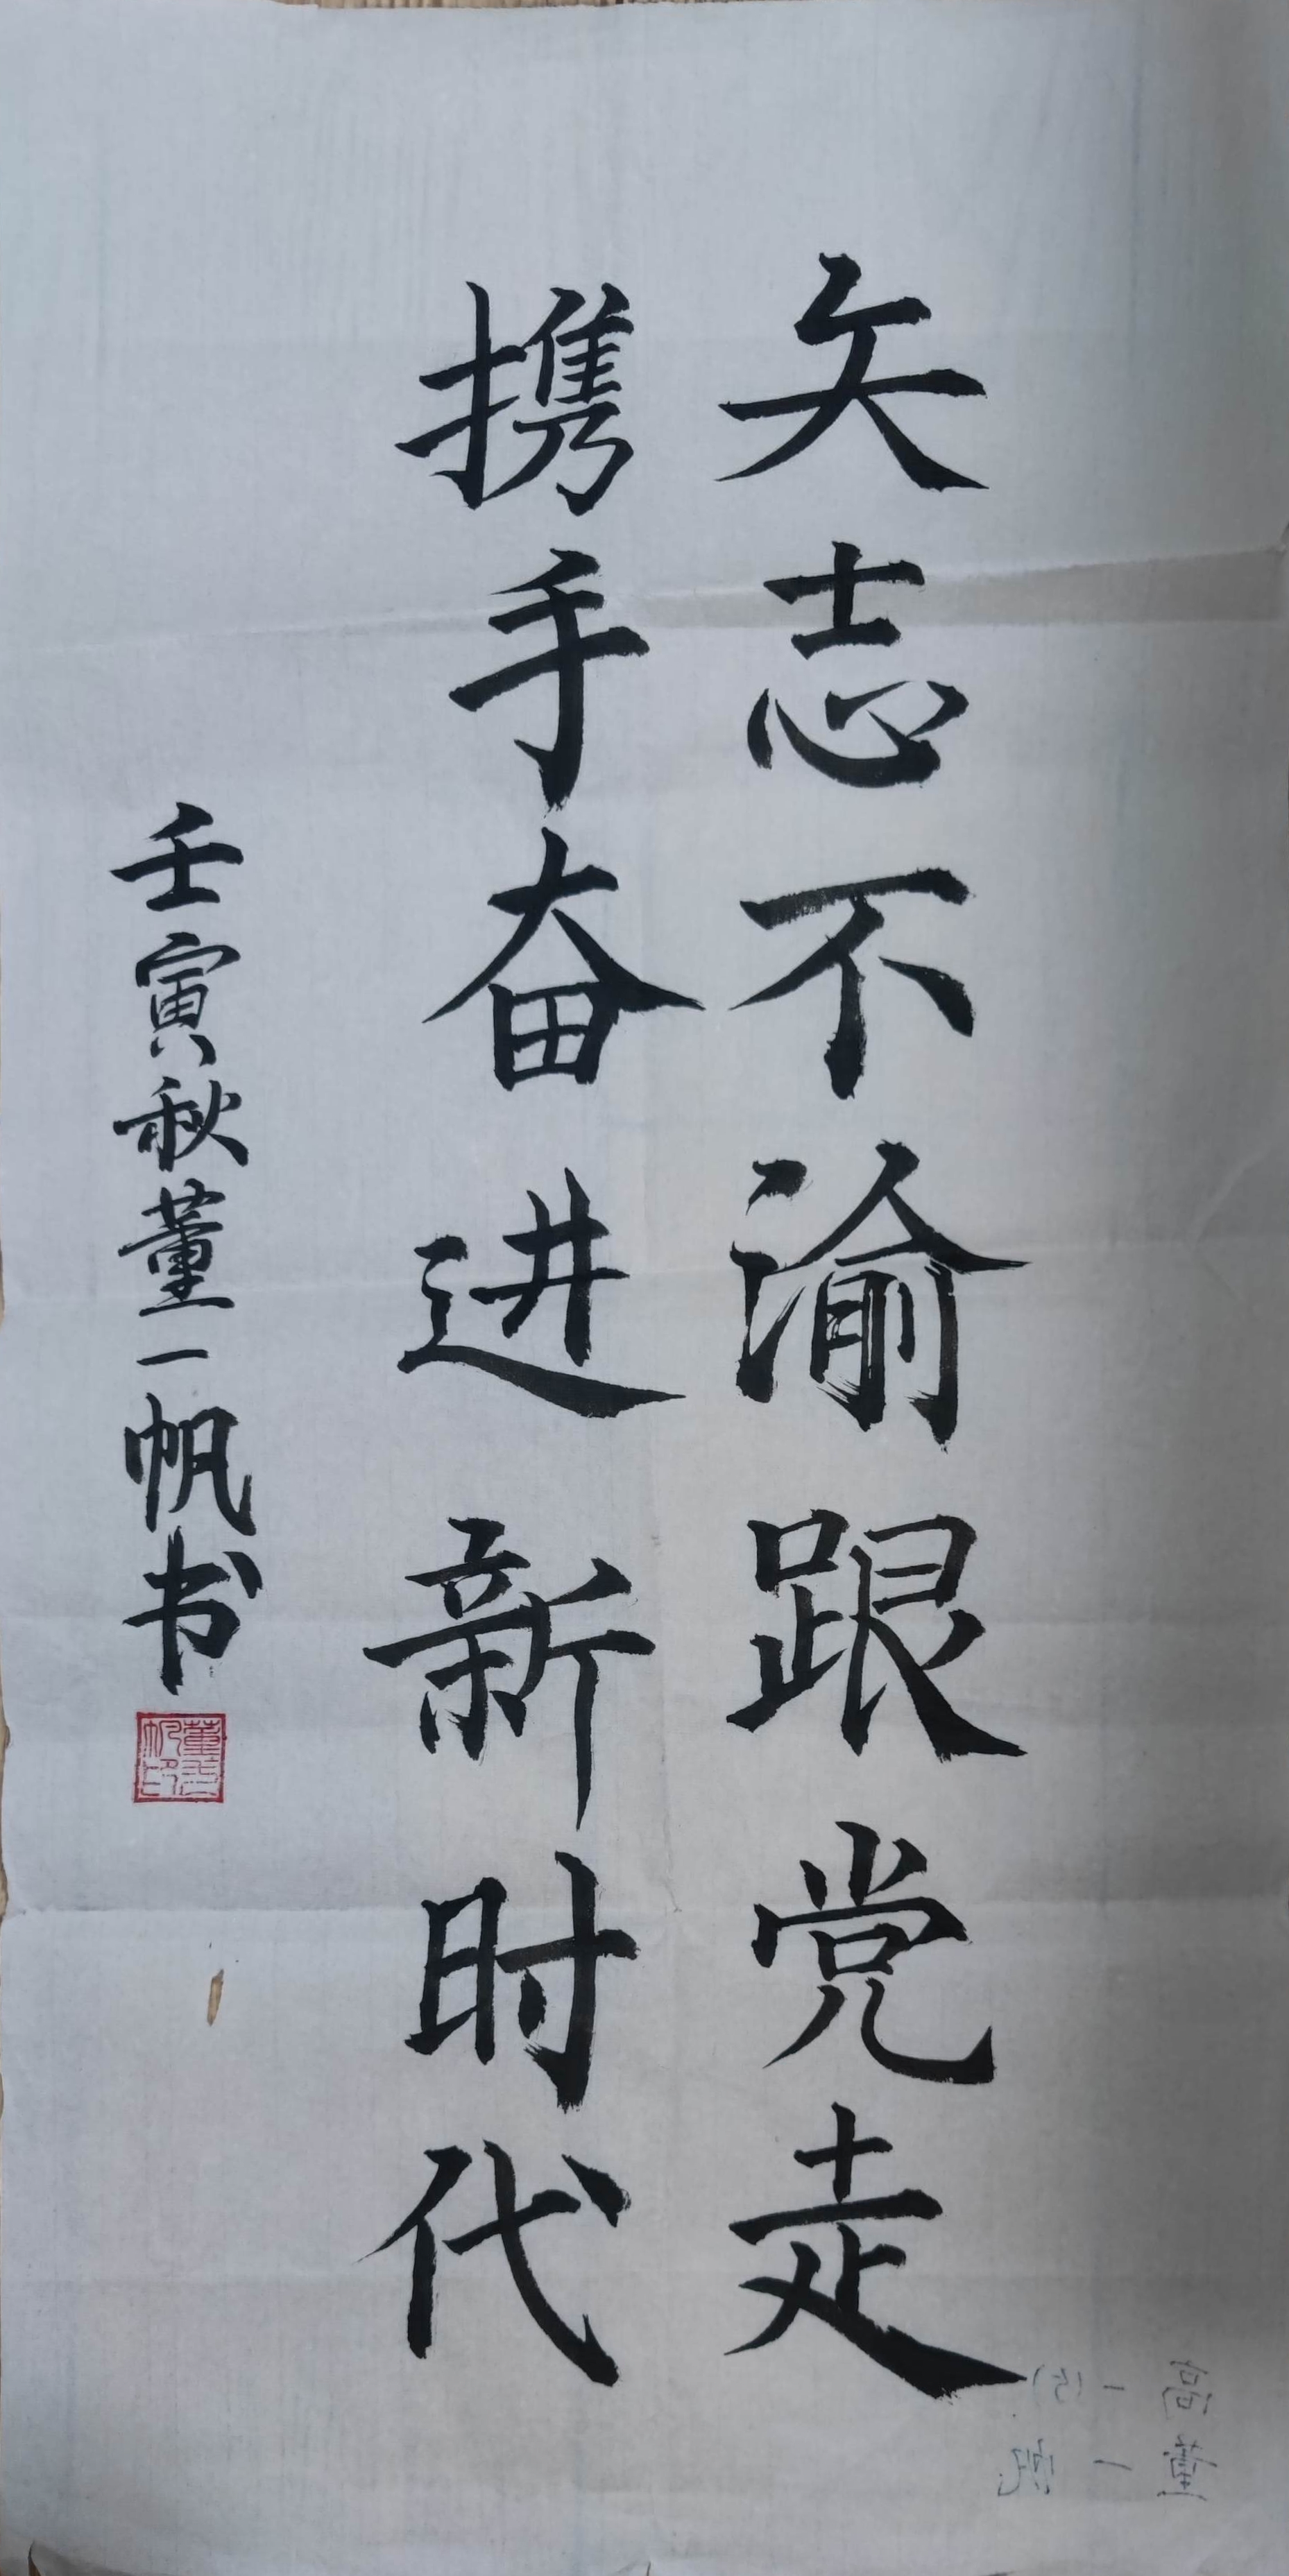 矢志不渝跟党走
携手奋进新时代
壬寅秋董一帆书
董一帆印
高一(5)
董一帆